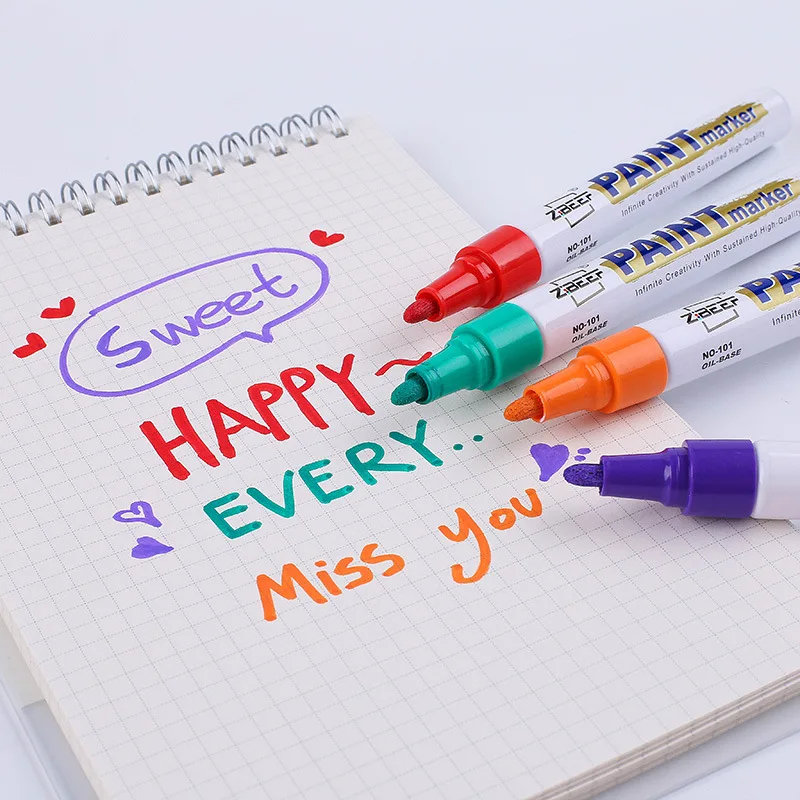 Sweet
HAPPY~
EVERY..
Miss You
ZiBEER
NO-101
OIL-BASE
PAINT marker
Infinite Creativity With Sustained High-Quality
ZiBEER
NO-101
OIL-BASE
PAINT marker
Infinite Creativity With Sustained High-Quality
ZiBEER
NO-101
OIL-BASE
PA
Infinite